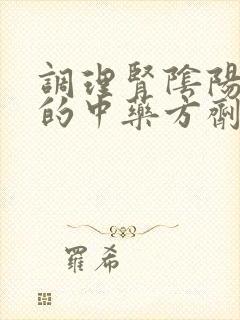 調理腎陰陽
的中藥方劑
羅希